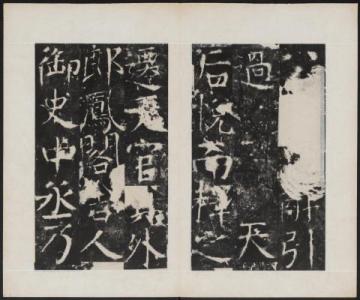 所引
過 天
后悅而擇之
遷天官員外
郎鳳閣舍人
御史中丞乃